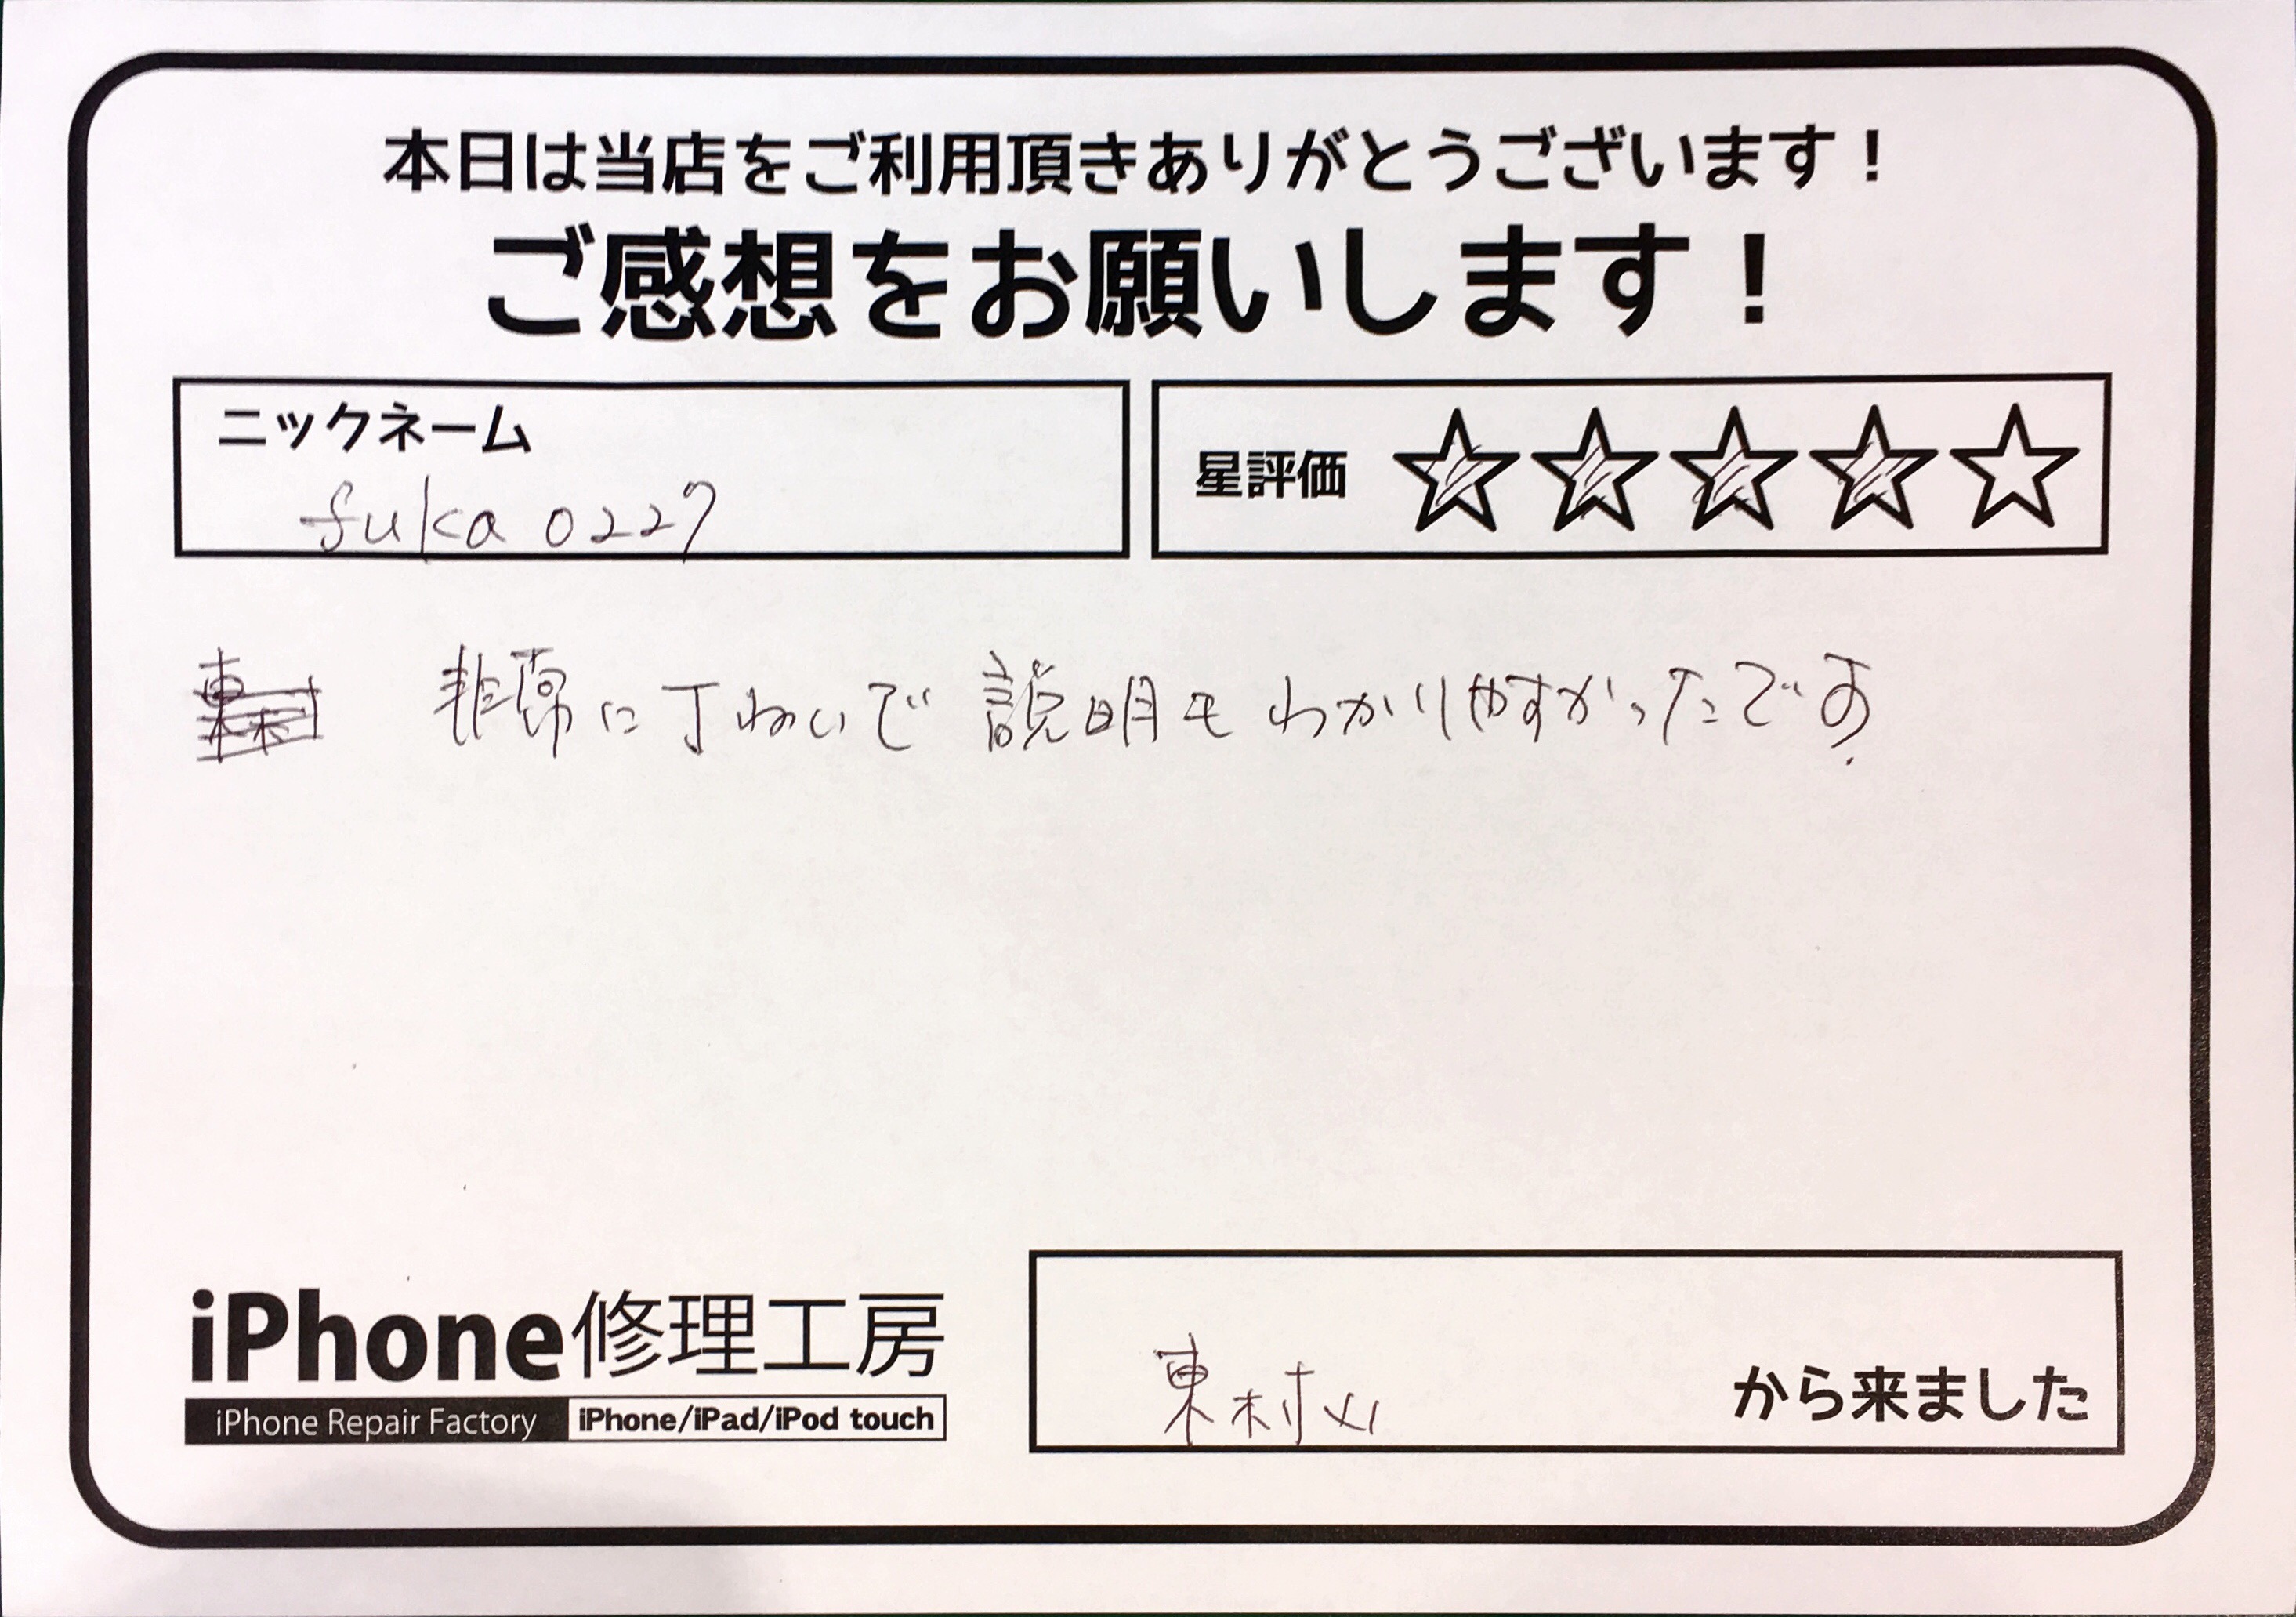 本日は当店をご利用頂きありがとうございます！
ご感想をお願いします！
ニックネーム
fuka 0227
星評価 ☆☆☆☆☆
非常に丁ねいで 説明も わかりやすかったです
iPhone修理工房
iPhone Repair Factory iPhone/iPad/iPod touch
東村山 から来ました